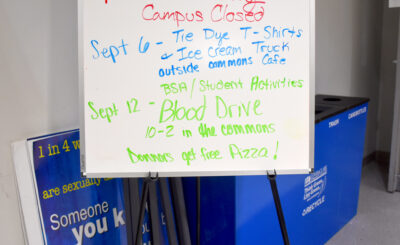 Campus Closed
Sept 6 - Tie Dye T-Shirts
& Ice Cream Truck
outside commons Cafe
BSA/Student Activities
Sept 12 - Blood Drive
10-2 in the commons
Donnors get free Pizza!
1 in 4 w
are sexually
Someone
you k
TRASH